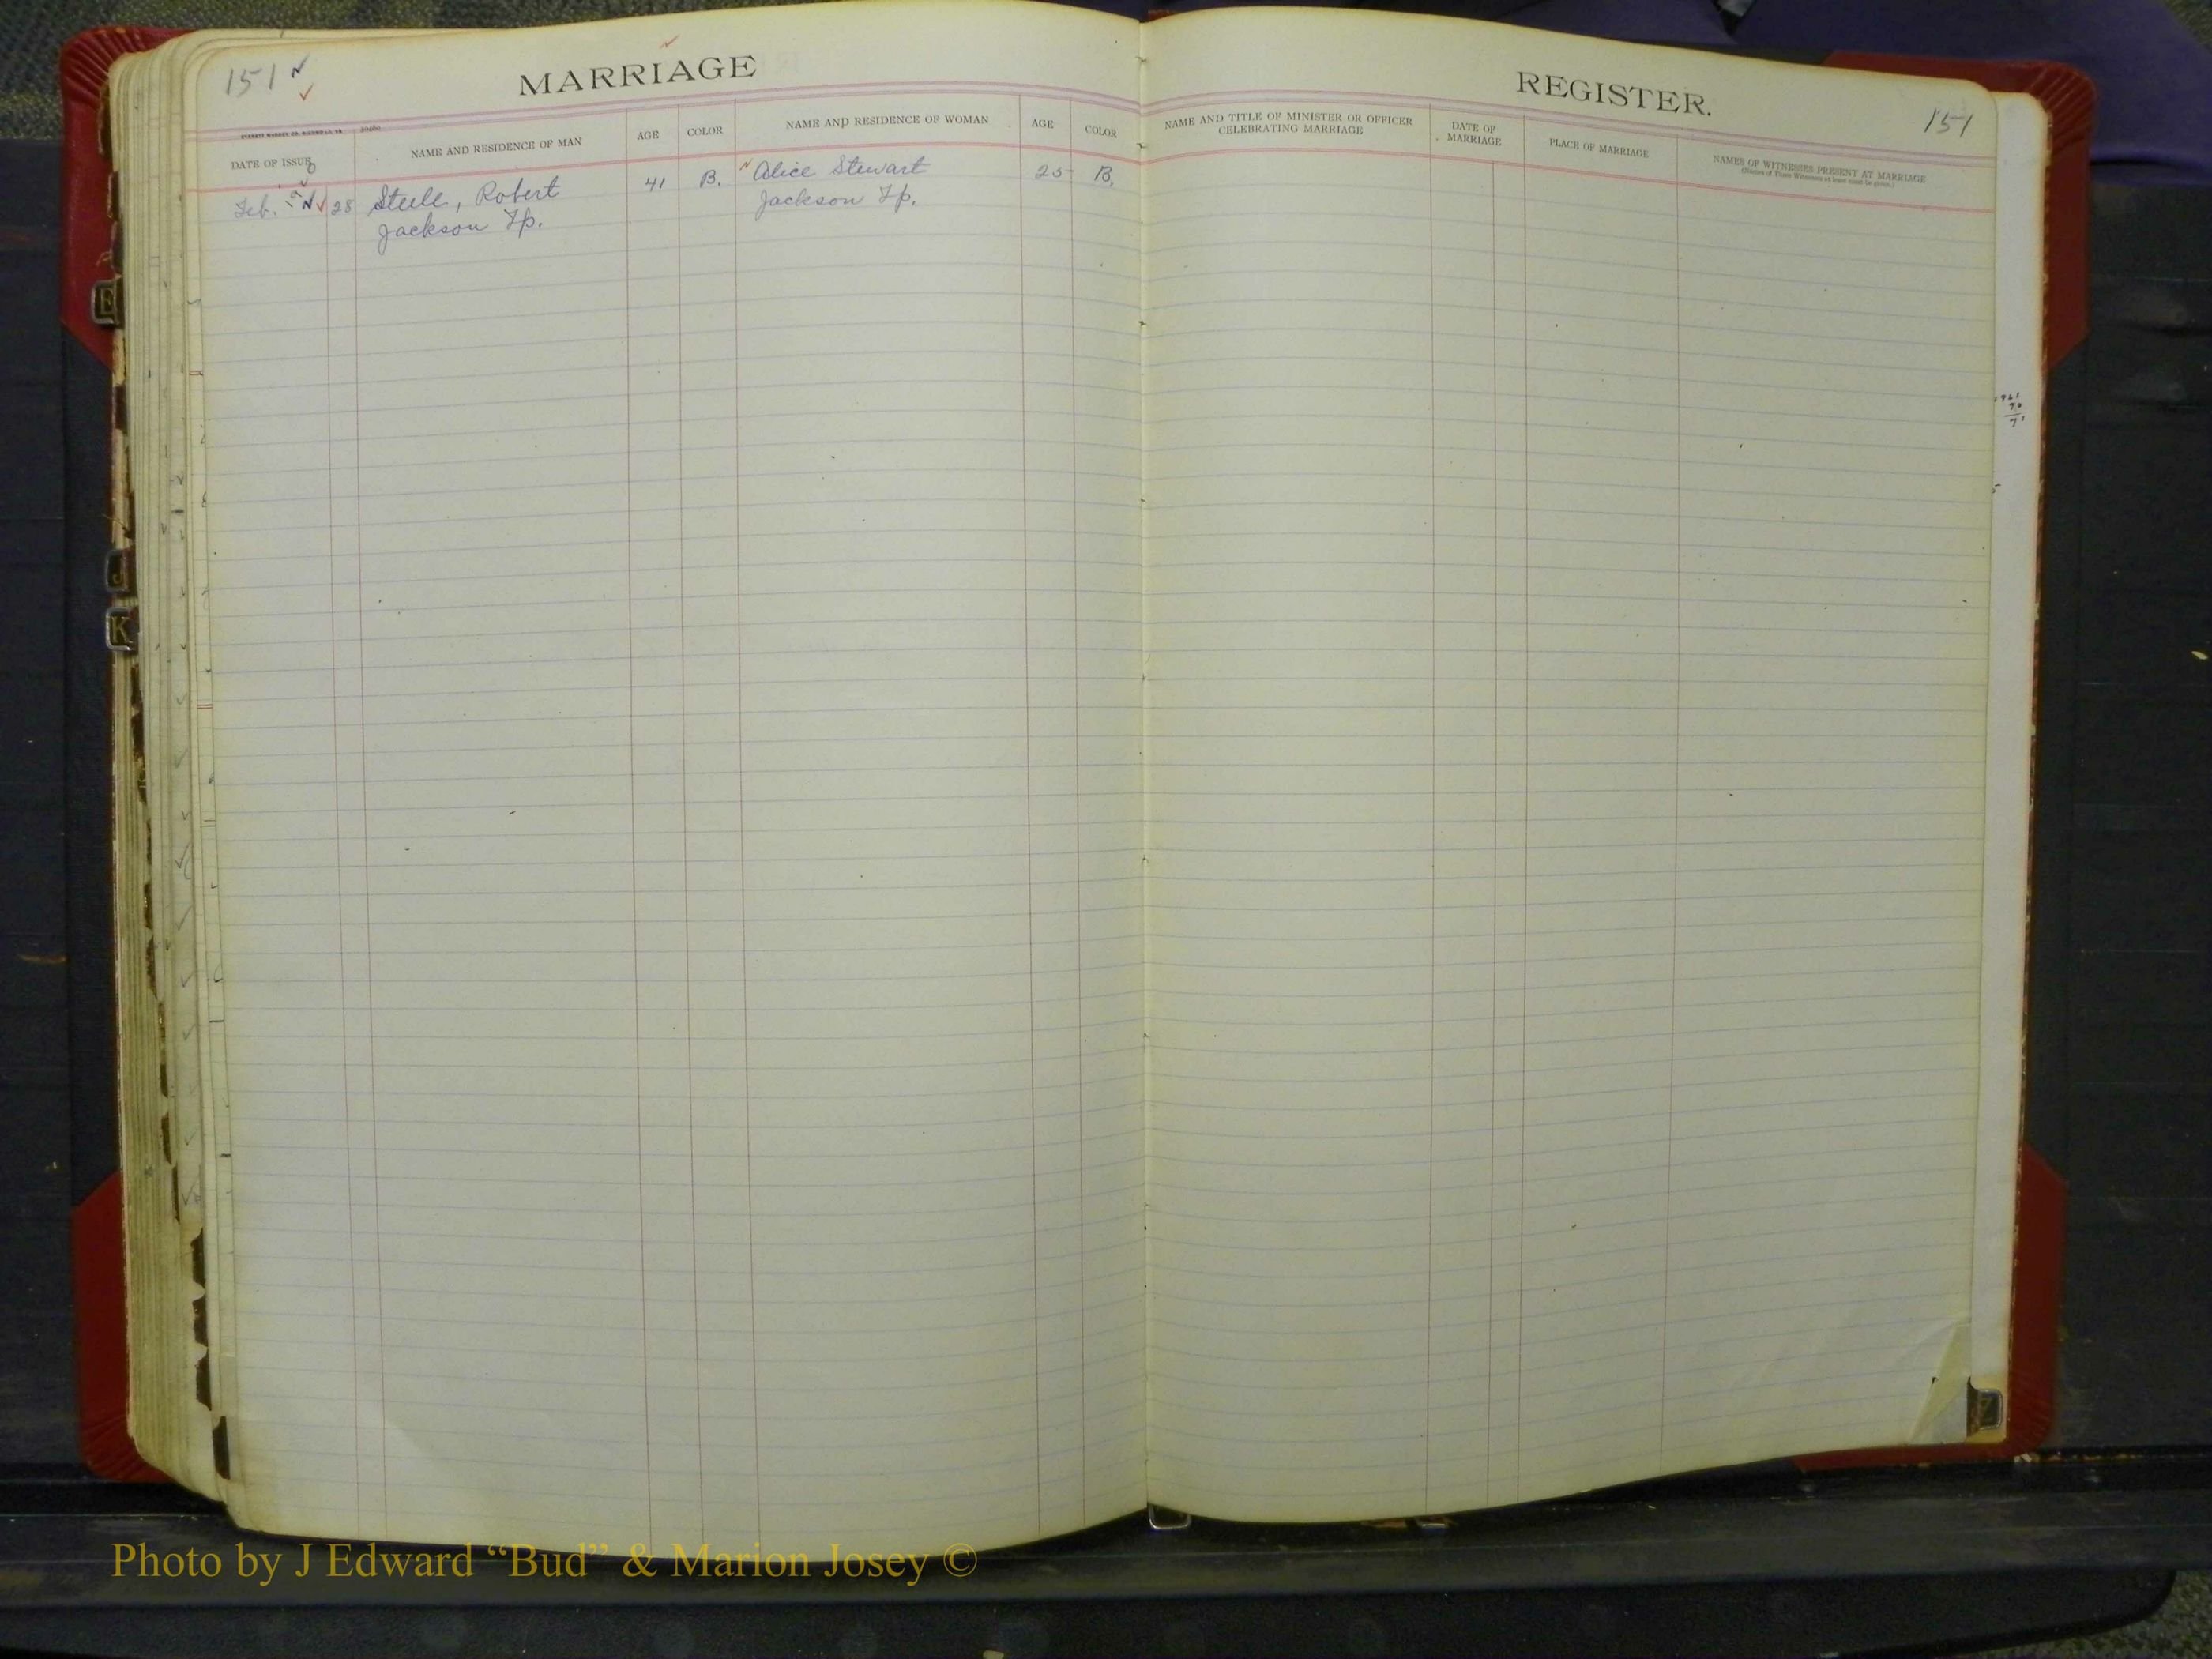 151
MARRIAGE
DATE OF ISSUE
NAME AND RESIDENCE OF MAN
AGE
COLOR
NAME AND RESIDENCE OF WOMAN
AGE
COLOR
Feb. 28
Steele, Robert
Jackson Tp.
41
B.
Alice Stewart
Jackson Tp.
25
B.
REGISTER.
151
NAME AND TITLE OF MINISTER OR OFFICER
CELEBRATING MARRIAGE
DATE OF
MARRIAGE
PLACE OF MARRIAGE
NAMES OF WITNESSES PRESENT AT MARRIAGE
(Names of Three Witnesses at least must be given.)
E
J
K
Photo by J Edward “Bud” & Marion Josey ©